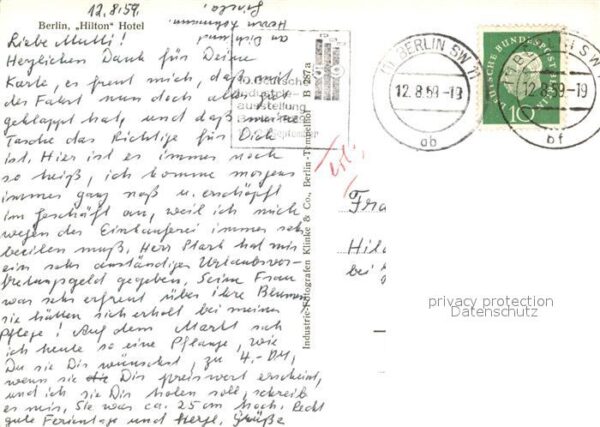 12.8.59.
Berlin, „Hilton" Hotel
Liebe Mutti!
Herzlichen Dank für Deine
Karte, es freut mich, daß mit
der Fahrt nun doch alles gut
geklappt hat, und daß meine
Tasche das Richtige für Dich
ist. Hier ist es immer noch
so heiß, ich komme morgens
immer ganz naß u. erschöpft
im Geschäft an, weil ich mich
wegen der Einkauferei immer sehr
beeilen muß. Herr Stark hat mir
ein sehr anständiges Urlaubsver-
tretungsgeld gegeben. Seine Frau
war sehr erfreut über ihre Blumen
sie hätten sich erholt bei meiner
Pflege! Auf dem Markt sah
ich heute so eine Pflanze, wie
Du sie Dir wünschst, zu 4,- DM,
wenn sie Dir preiswert erscheint,
und ich sie Dir holen soll, schreib
es mir. Sie war ca. 25 cm hoch. Recht
gute Ferientage und Herzl. Grüße
an Dich und
Herrn Lohmann.
Industrie-Fotografen Klinke & Co., Berlin-Tempelhof B 287a
Deutsche
Industrie-
ausstellung
(1) BERLIN SW 11
12.8.59-19
ab
DEUTSCHE BUNDESPOST BERLIN
10
(1) BERLIN SW 11
12.8.59-19
bf
Fra
Hild
bei
privacy protection
Datenschutz